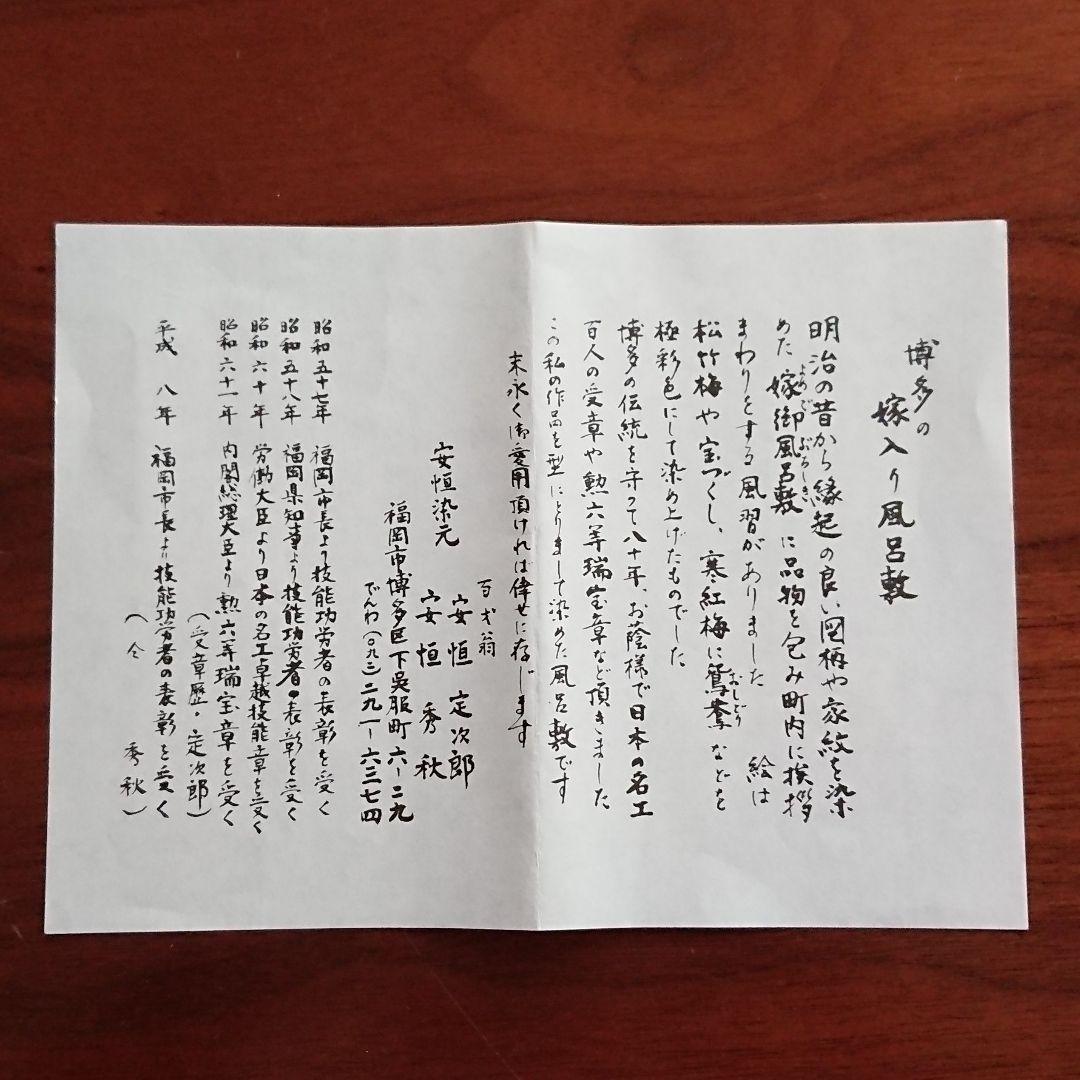 博多の
嫁入り風呂敷
明治の昔から縁起の良い図柄や家紋を染
めた嫁御風呂敷に品物を包み町内に挨拶
よめごぶろしき
まわりをする風習がありました 絵は
松竹梅や宝づくし、寒紅梅に鴛鴦などを
おしどり
極彩色にして染め上げたものでした
博多の伝統を守って八十年、お蔭様で日本の名工
百人の受章や勲六等瑞宝章など頂きました
この私の作品を型にとりまして染めた風呂敷です
末永く御愛用頂ければ倖せに存じます
百才翁
安恒染元 安恒定次郎
安恒秀秋
福岡市博多区下呉服町六ー二九
でんわ(〇九二)二九一ー六三七四
昭和五十七年 福岡市長より技能功労者の表彰を受く
昭和五十八年 福岡県知事より技能功労者の表彰を受く
昭和六十年 労働大臣より日本の名工卓越技能章を受く
昭和六十一年 内閣総理大臣より勲六等瑞宝章を受く
(受章歴・定次郎)
平成八年 福岡市長より技能功労者の表彰を受く
(仝 秀秋)